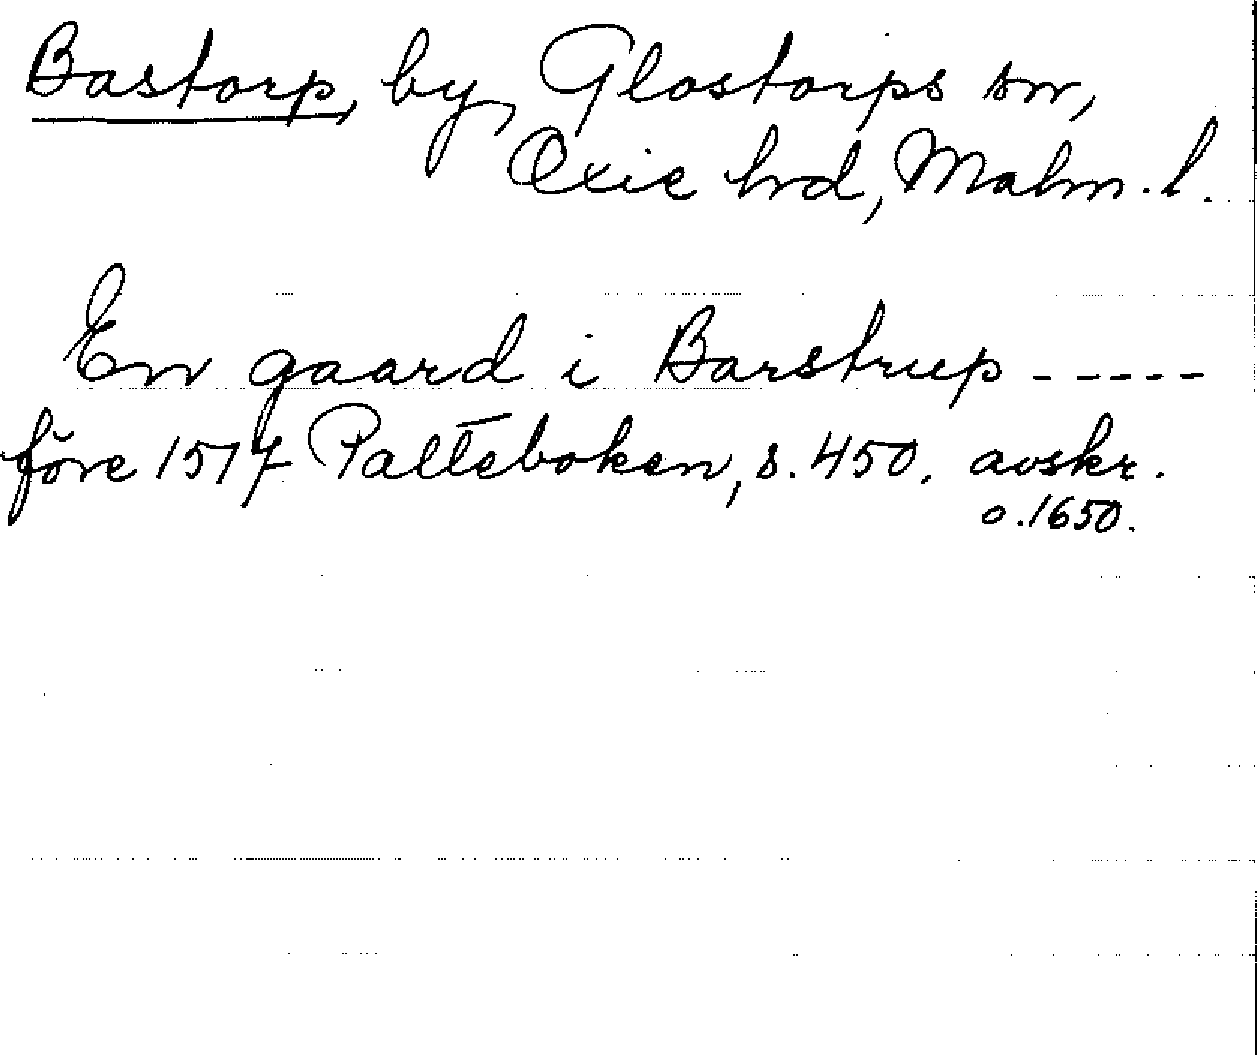 Bastorp, by, Glostorps sn,
Oxie hrd, Malm. l.
En gaard i Barstrup -----
före 1517 Palteboken, s. 450. avskr.
o. 1650.